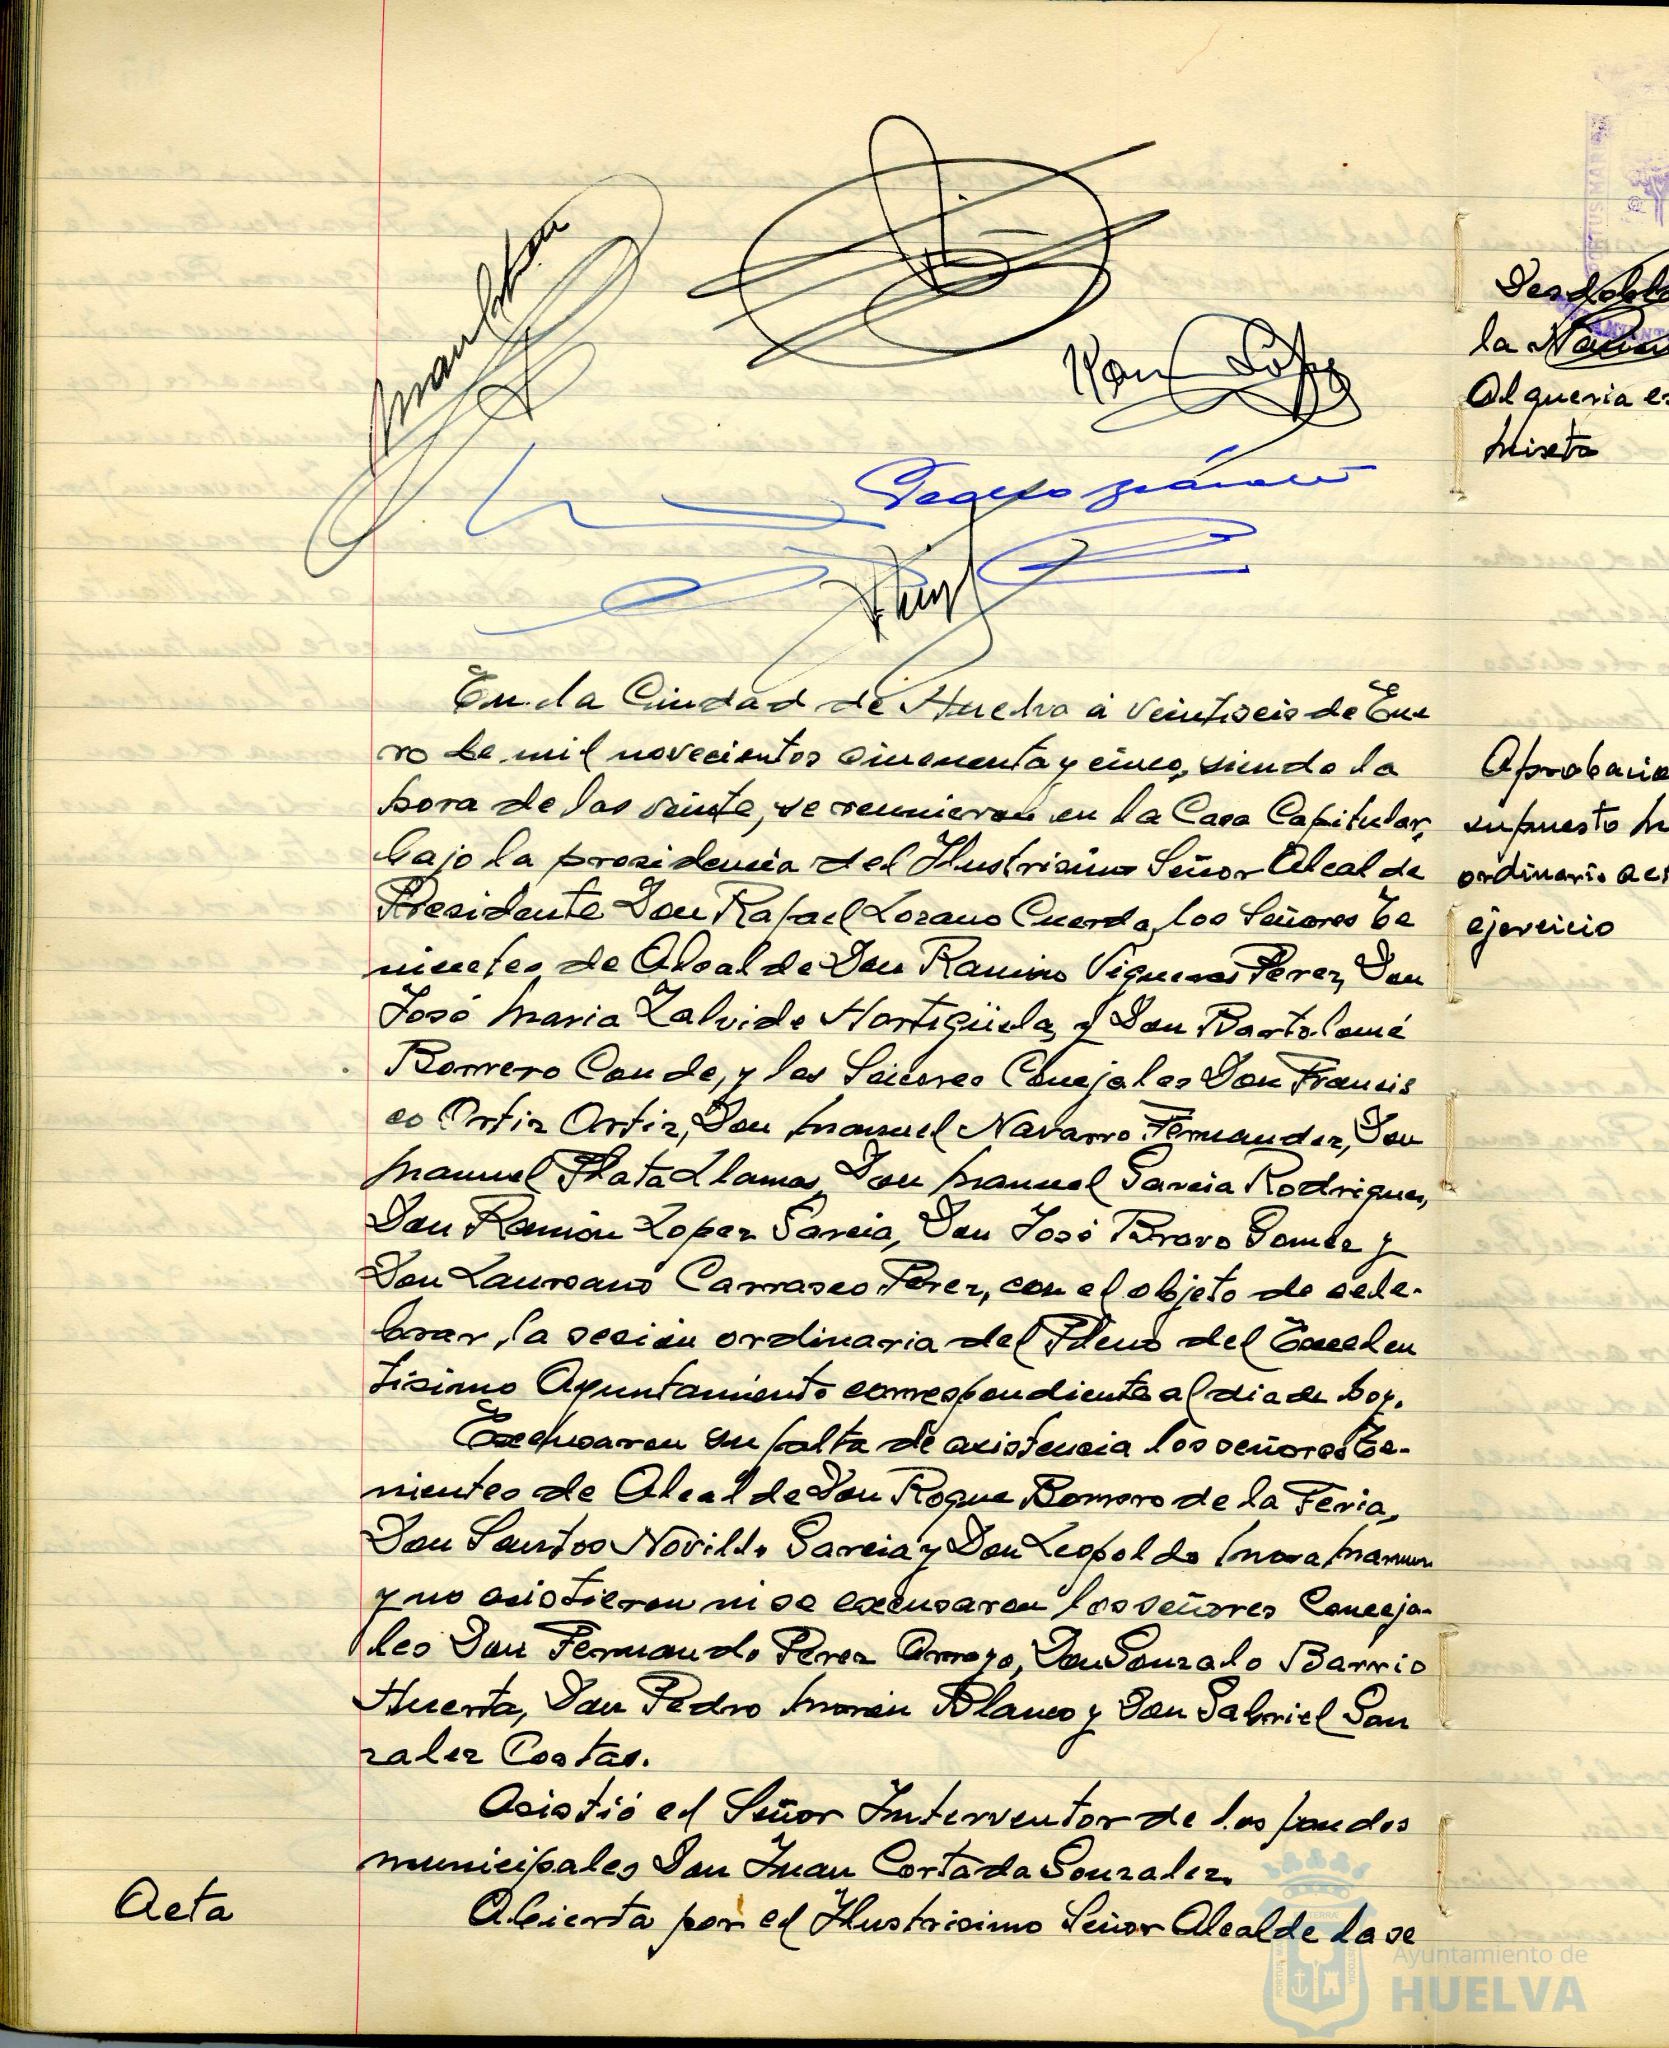 En la Ciudad de Huelva á veintiseis de Ene
ro de mil novecientos cincuenta y cinco, siendo la
hora de las veinte, se reunieron en la Casa Capitular,
bajo la presidencia del Ilustrisimo Señor Alcalde
Presidente Don Rafael Lozano Cuerda, los Señores Te
nientes de Alcalde Don Ramiro Vigueras Perez, Don
José Maria Zalvide Hortigüela, y Don Bartolomé
Borrero Conde, y los Señores Concejales Don Francis
co Ortiz Ortiz, Don Manuel Navarro Fernandez, Don
Manuel Plata Llamas, Don Manuel Garcia Rodriguez,
Don Ramón Lopez Garcia, Don José Bravo Gomez y
Don Laureano Carrasco Perez, con el objeto de cele-
brar, la sesión ordinaria del Pleno del Excelen
tisimo Ayuntamiento correspondiente al dia de hoy.
Excusaron su falta de asistencia los señores Te-
nientes de Alcalde Don Roque Borrero de la Feria,
Don Santos Novillo Garcia y Don Leopoldo Mora
y no asistieron ni se excusaron los señores Conceja-
les Don Fernando Perez Arroyo, Don Gonzalo Barrio
Huerta, Don Pedro Morón Blanco y Don Gabriel Gon
zalez Costas.
Asistió el Señor Interventor de los fondos
municipales Don Juan Cortada Gonzalez.
Acta
Abierta por el Ilustrisimo Señor Alcalde la se
la
Alqueria
Aprobacio
supuesto
ordinario
ejercicio
Ayuntamiento de
HUELVA